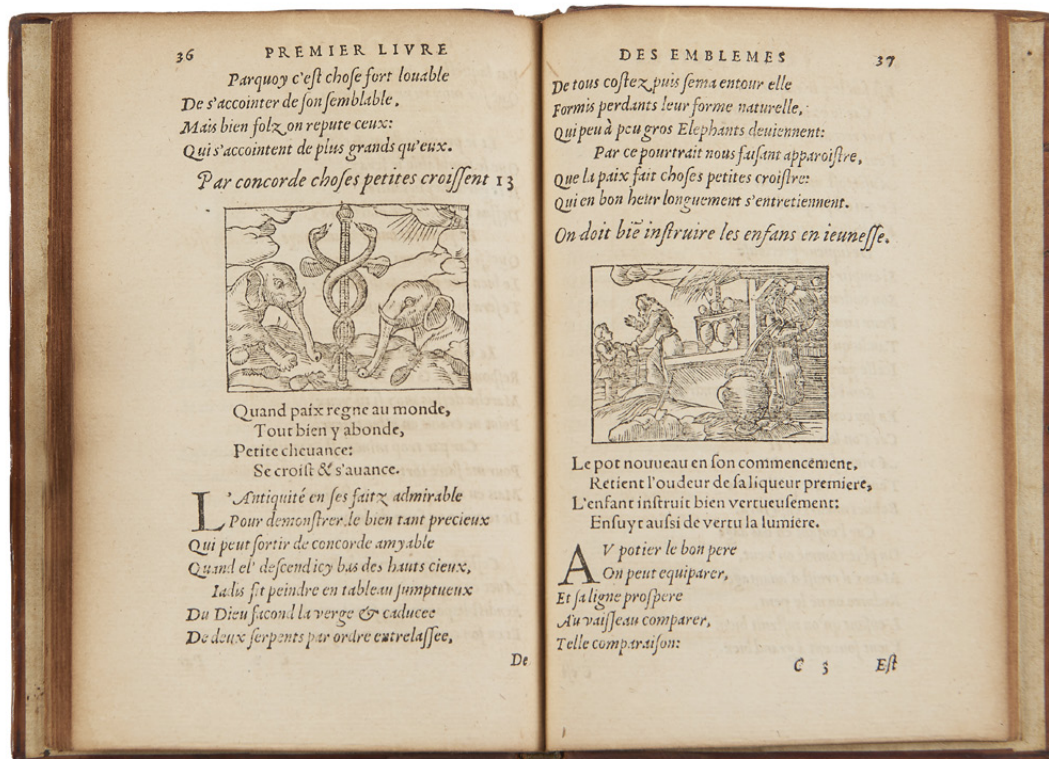 36 PREMIER LIVRE
Parquoy c'eſt choſe fort louable
De s'accointer de ſon ſemblable,
Mais bien folz on repute ceux:
Qui s'accointent de plus grands qu'eux.
Par concorde choſes petites croiſſent 13
Quand paix regne au monde,
Tout bien y abonde,
Petite cheuance:
Se croiſt & s'auance.
L'Antiquité en ſes faitz admirable
Pour demonſtrer le bien tant precieux
Qui peut ſortir de concorde amyable
Quand el' deſcend icy bas des hauts cieux,
Iadis fit peindre en tableau ſumptueux
Du Dieu facond la verge & caducee
De deux ſerpents par ordre entrelaſſee,
De
DES EMBLEMES 37
De tous coſtez puis ſema entour elle
Formis perdants leur forme naturelle,
Qui peu à peu gros Elephants deuiennent:
Par ce pourtrait nous faiſant apparoiſtre,
Que la paix fait choſes petites croiſtre:
Qui en bon heur longuement s'entretiennent.
On doit biē inſtruire les enfans en ieuneſſe.
Le pot nouueau en ſon commencement,
Retient l'oudeur de ſa liqueur premiere,
L'enfant inſtruit bien vertueuſement:
Enſuyt auſsi de vertu la lumière.
AV potier le bon pere
On peut equiparer,
Et ſa ligne proſpere
Au vaiſſeau comparer,
Telle comparaiſon:
C 3 Eſt